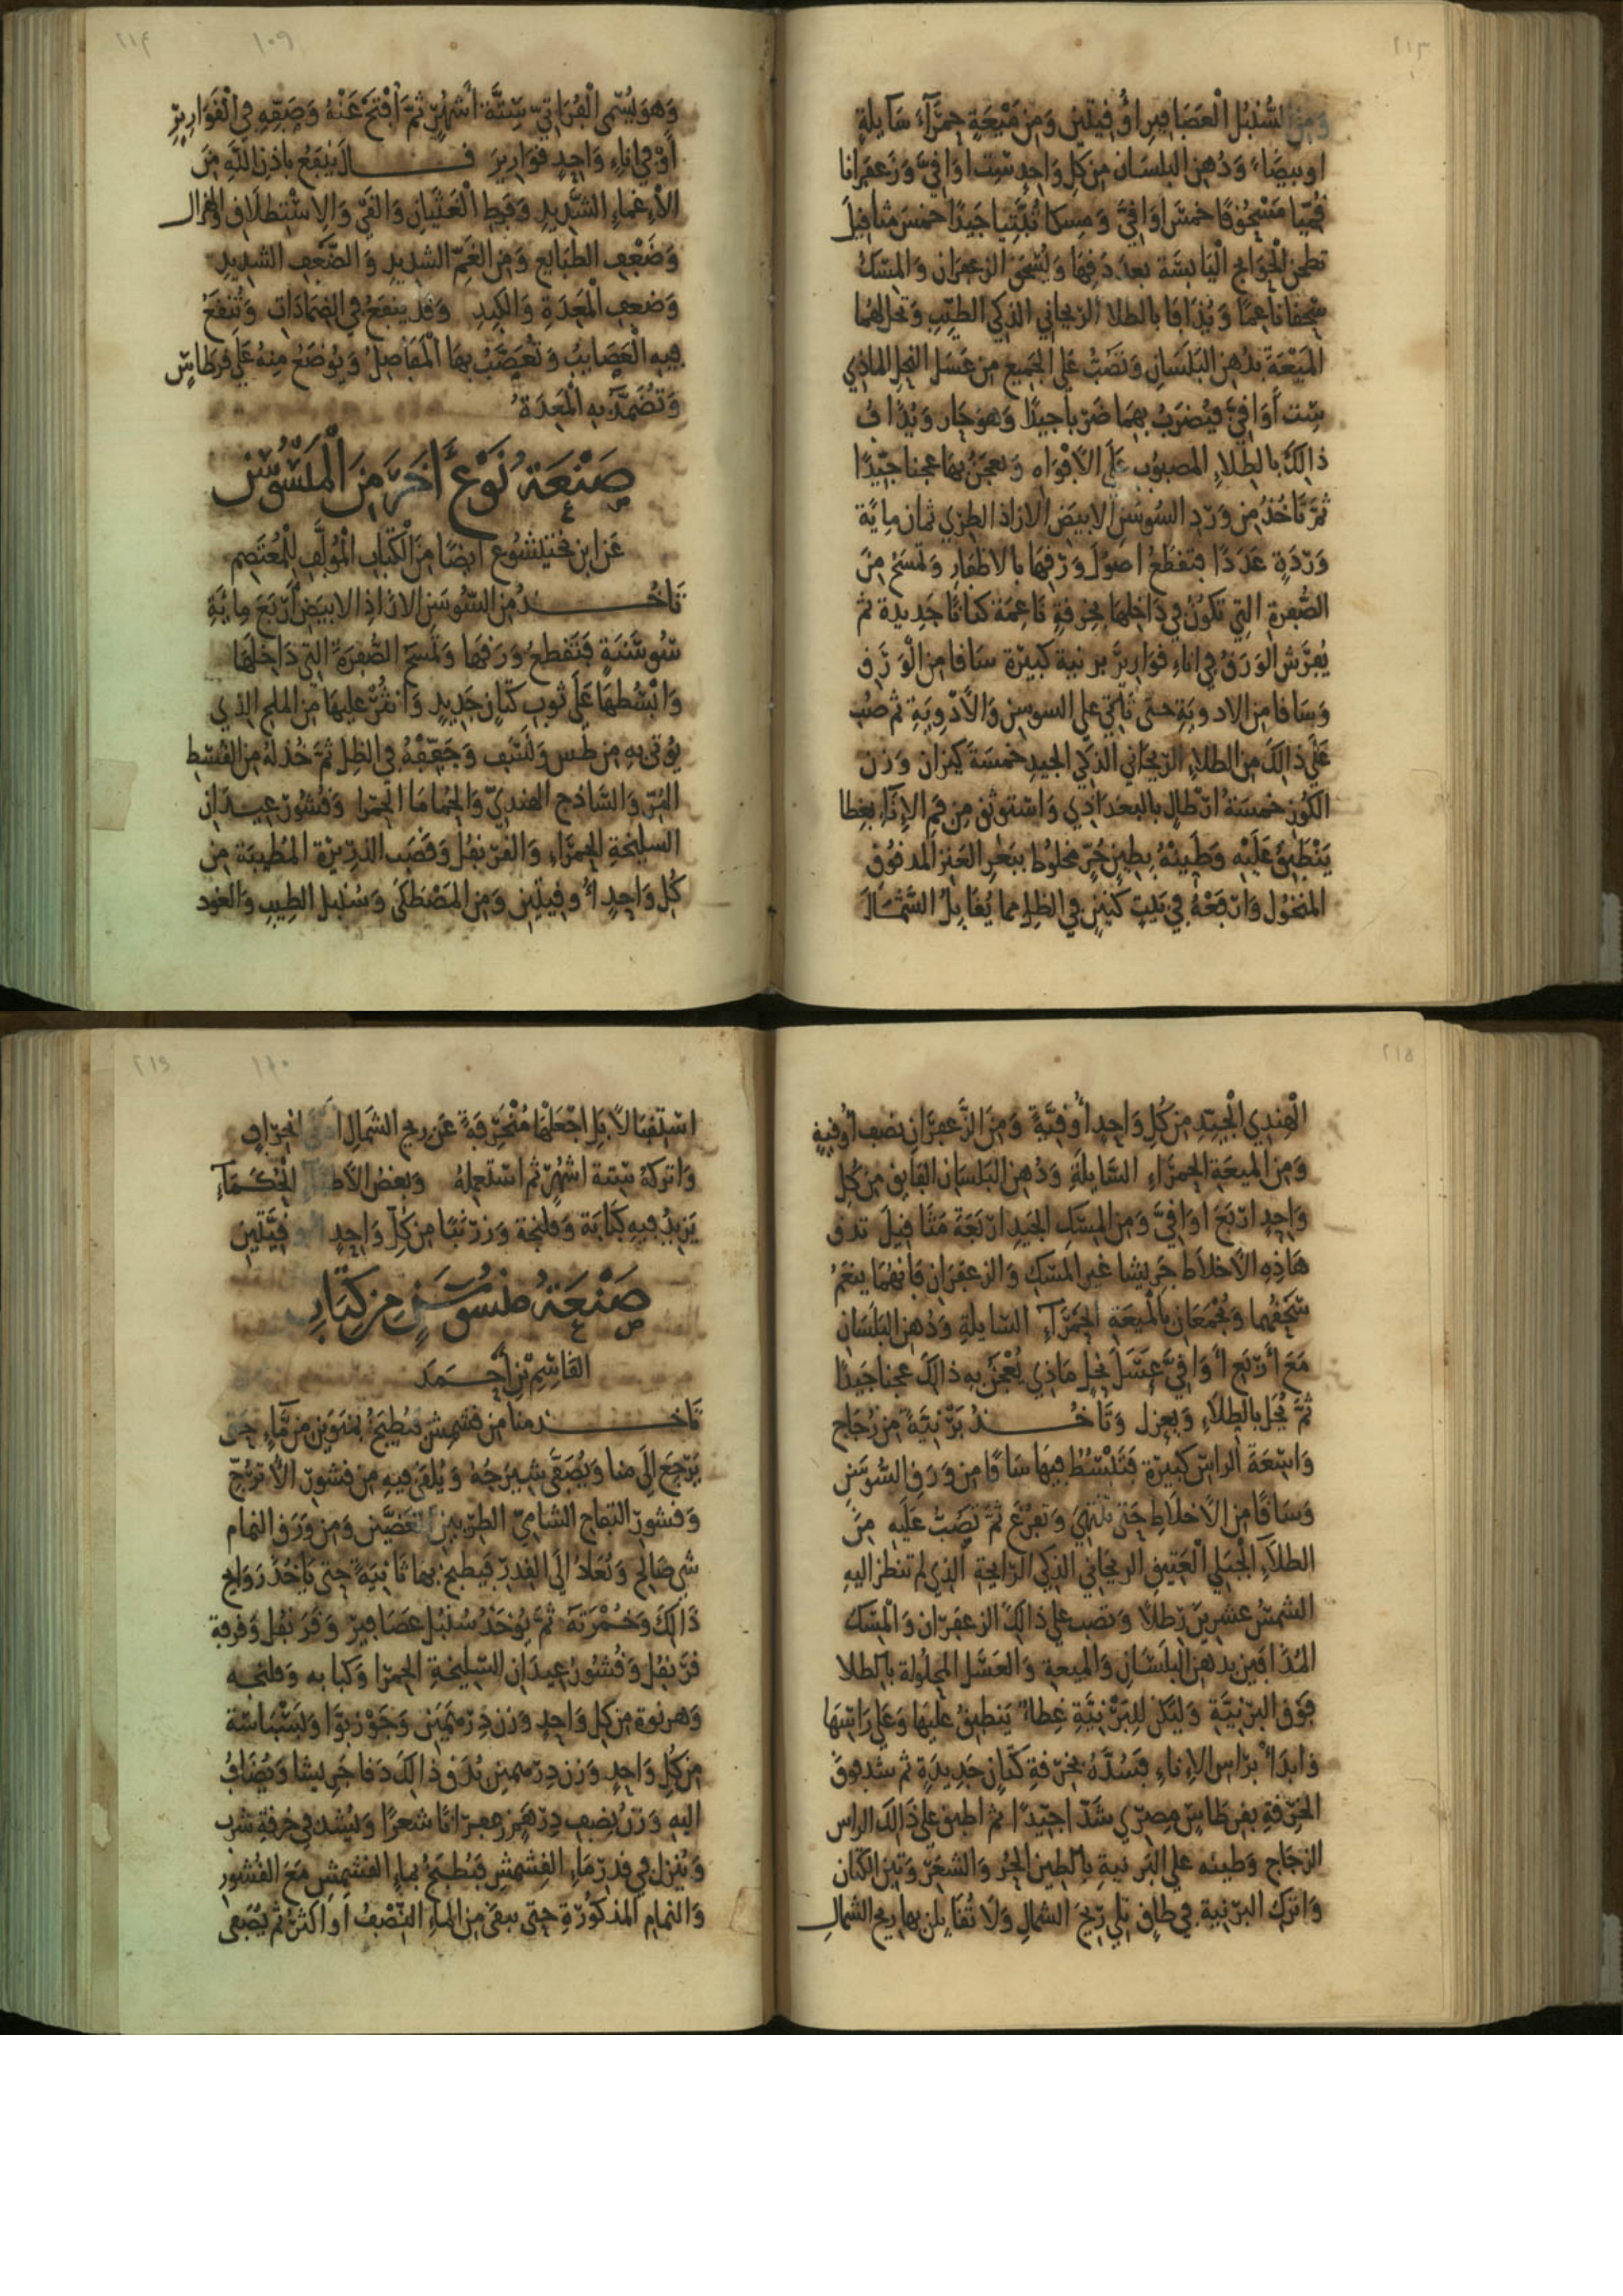 ٢١٣
وَمِنَ السُّنْبُلِ الْعَصَافِيرِ أُوقِيتَيْنِ وَمِنْ مَيْعَةٍ حَمْرَآءَ سَآيِلَةٍ
اوبيضَاءَ وَدُهنِ البلسَان من كلِ وَاحدٍ ستت اوَاقيَّ وَزعفَرانا
قُمّيا مَسْحُوقًا خمسَ اوَاقيَّ وَمسِكا تُبَّتِيا جَيدًا خمسَ مثاقيلَ
تطحن الْحَوَايج الْيَابسَة بعدَ دَقِهَا وَيُسْحَق الزعفرَان وَالمِسْكُ
سَحقا ناعِمًا وَيُذَافَا بالطلا الرَيحَاني الذكي الطيّبِ وَتحَل لهُما
المَيْعَةَ بدُهنِ البَلسَانِ وَتصَبُّ عَلَى الجَمِيع من عَسَل النحل الماذي
سِت أَوَاقيَّ فيُضرَبُ بهِمَا ضَرْبا جيدًا وَهوَ حَار وَيُذَافُ
ذالكَ بالطِلاءِ المصبوُبِ عَلَى الأفْوَاه وَيعجَنُ بهَا عجنا جيّدًا
ثمَّ تَاخُذُ من وَرْدِ السُوسَنِ الابيَض الازاذ الطري ثمان مِايَة
وَرْدَةٍ عَدَدًا فتقطَعُ اصوُلَ وَرَقِهَا بالاظفَارِ وَتمسَحُ مِنَ
الصُفرة التِي تَكوُنُ في دَاخِلهَا بخرقةٍ نَاعِمَة كتانًا جَديدة ثم
يُفرَش الوَرَقُ في اناءِ قوَاريرَ برنية كبيرَة سَافا من الْوَرَقِ
وَسَافا من الادويَةِ حتى تَاتي على السوسن وَالأدْوِيَةِ ثم صُب
عَلَى ذالكَ من الطلاءِ الرَيحَاني الذَكي الجيدِ خمسَة كيزان وَزن
الكوُزِ خمسَةُ ارْطالٍ بالبغدَادي وَاسْتوثق مِن فَمِ الإنَآءِ بغِطا
يَنْطَبقُ عَلَيْهِ وَطَيِنْهُ بِطِينٍ حُرٍّ مخلوُط ببَعرِ العَنزِ المدقوُقِ
المنخوُل وَارْفَعْهُ في بَيْتٍ كَنِينٍ في الظِل مما يُقَابِلُ الشَّمَالَ
٢١٤
١٠٩
وَهوَ يُسَمى الْفُرَاتيّ سِتَّةَ أشهُرٍ ثمَّ افْتَحْ عَنْهُ وَصَفِّهِ في الْقَوَارِيرِ
اوْ في اناءٍ وَاحِدٍ قوَارِيرَ قال يَنْفَعُ باذنِ اللَّهِ مِنَ
الأغماءِ الشَّدِيدِ وَفَرطِ الْغَثَيَان وَالقَيِّ وَالاسْتطلَاقِ وَالهُزالِ
وَضَعْفِ الطبَايع وَمن الغَمِّ الشدِيدِ وَالضَّعفِ الشديدِ
وَضعفِ الْمَعِدَةِ وَالكبِدِ وَقد ينفَعُ في الضمَادَاتِ وَتُنقَعُ
فيهِ العَصَايِبُ وَتُعَصَّبُ بهَا الْمَفَاصِلُ وَيوُضَعُ مِنهُ عَلى قرطاسٍ
وَتُضَمَّدُ بِهِ الْمَعِدَة
صَنْعَةُ نَوْعٍ آخَرَ مِنَ الْمَسُّوسَن
عَن ابن بختيشوُع أيضًا مِنَ الْكتَابِ الْمُؤَلَّفِ لِلْمُعْتَصِمِ
تَاخُذُ من السُّوسَنِ الازاذِ الابيَضِ أرْبَعَ مِايَةِ
سُوسَنَةٍ فَتَقطعُ وَرَقهَا وَتمْسَحُ الصُّفرَةَ التي دَاخلهَا
وَابْسُطهَا عَلَى ثوبِ كتّانٍ جَديدٍ وَانثُرْ عليهَا من الملح الذِي
يوُتى بهِ من طُس وَنَسَف وَجَفِّفْهُ في الظلِ ثمَّ خُذ لهُ من القُسْطِ
المُرّ وَالسَّاذج الهنديّ وَالحُمَامَا الحَمْرا وَقُشوُر عيدَانِ
السليخةِ الحَمرَاءِ وَالقَرَنفُل وَقصَب الذَرِيرَة المُطيبَة من
كُل وَاحدٍ أُوقيتَين وَمن المَصْطَكَى وَسُنبل الطِيبِ وَالعُود
٢١٥
الْهِنْدِي الْجَيِّدِ مِن كُلِ وَاحدٍ أُوقيَّةً وَمِنَ الزَّعفرَانِ نصف أُوقيةٍ
وَمن الميعَةِ الحَمرَاءِ السَّايلَةِ وَدُهنِ البَلسَان الفَايق من كُل
وَاحدٍ ارْبَعَ اوَاقيَّ وَمن المِسْكِ الجَيدِ ارْبَعَةَ مَثَاقيلَ تدق
هَاذِهِ الأخلاط جَرِيشا غيرَ المِسْكِ وَالزعفرَان فَانهُمَا يُنعَمُ
سَحقُهما وَيُجْمَعَان بالميعَةِ الحَمْرَآءِ السّايلةِ وَدُهنِ البَلسَانِ
مَعَ أرْبَع أوَاقيَّ عَسَلَ نحل مَاذي يُعْجَنُ بهِ ذالكَ عجنا جَيدًا
ثمَّ يُحَل بالطِلاءِ وَيعزل وَتَاخُذُ بَرْنيَّةً مِن زُجَاج
وَاسِعَةَ الراس كبيرَة فَتَبْسُطُ فيهَا سَافًا من وَرَقِ السُّوسَنِ
وَسَافًا من الأخلاطِ حَتى تَنْتَهِيَ وَتَفرُغَ ثمَّ تَصُبُّ عَلَيهِ مِنَ
الطلآءِ الْجَبَلي الْعَتِيقِ الرَيحَاني الذكي الرَايحَةِ الذي لم تنظر اليهِ
الشمسُ عشرينَ رَطلاً وَتصب عَلى ذالكَ الزعفرَان وَالمِسْكَ
المُذَافَين بدهنِ البلَسَانِ وَالميعة وَالعَسَلِ المحلولة بالطلا
فَوق البرنيَّة وَليَكن لِلبَرْنيَّةِ غِطاءٌ يَنطبقُ عَليهَا وَعَلى رَاسِهَا
وَابدَأ برَاس الإناءِ فسُدَّهُ بخرقةِ كتّانٍ جَديدَةٍ ثم شد فوقَ
الخرقةِ بقرطَاسٍ مِصْري شَدّا جَيّدًا ثم اطبق عَلى ذَالكَ الراس
الزجَاج وَطينه على البَرنيةِ بالطين الحُر وَالشَعرِ وَتبنِ الكتان
وَاترك البرْنية في طاقٍ يلي رِيحَ الشمَالِ وَلَا تُقَابلن بها ريح الشمَال
٢١٦
١١٠
استقبَالاً بَل اجْعَلْهَا مُنْحَرِفَةً عَن ريح الشمَال انحرَافٍ
وَاتركهُ ستة اشهُرٍ ثم استعملهُ وَبعضُ الأطبآ الْحُكَمَآءِ
يَزيدُ فيهِ كبَابَة وَفلنجة وَزرْنبًا من كُلّ وَاحِدٍ أُوقيَّتَينِ
صَنْعَةُ مَيسُوسَنٍ مِن كِتَابِ
القَاسِمِ بنِ أحْمَدَ
تَاخذ منا من قشمِش فيُطبَخُ بمنَوَين من مَّآءٍ حَتى
يَرْجعَ إلَى منا وَيُصَفَّى شيرَجُهُ وَيُلقَى فيهِ من قشورِ الأترُجِّ
وَقشورِ التفاحِ الشامِيّ الطريينِ الغَضَّين وَمن وَرَقِ النمام
شي صَالح وَتُعَادُ إلَى القدرِ فيَطبخ بهَا ثانيَةً حتى يَاخُذَ رَوَايح
ذَالكَ وَحُمْرَتَهُ ثمَّ يوُخَذُ سُنبُل عصَافير وَقرَنفُل وَقرفة
قرَنفُل وَقُشُورُ عيدَانِ السّلِيخَةِ الحَمرَا وَكبابه وَفلنجه
وَهرنوَة من كل وَاحدٍ وَزن دِرْهَمَين وَجَوْزبَوّا وَبَسْبَاسَة
من كُلِ وَاحدٍ وَزن دِرْهمين يُدَق ذالكَ دَقا جَريشا وَيُضَافُ
اليهِ وَزنُ نِصف دِرْهَم زعفرَانًا شعرًا وَيُشد في خرقةِ شرب
وَيُنزل في قدرِ مَاءِ القِشمِشِ فيُطبَخُ بماءِ القشمِشِ مَعَ القُشورِ
وَالنمامِ المذكوُرَةِ حتى يبقى من المَاءِ النّصْفُ اوَ اكثرُ ثم يُصَفى